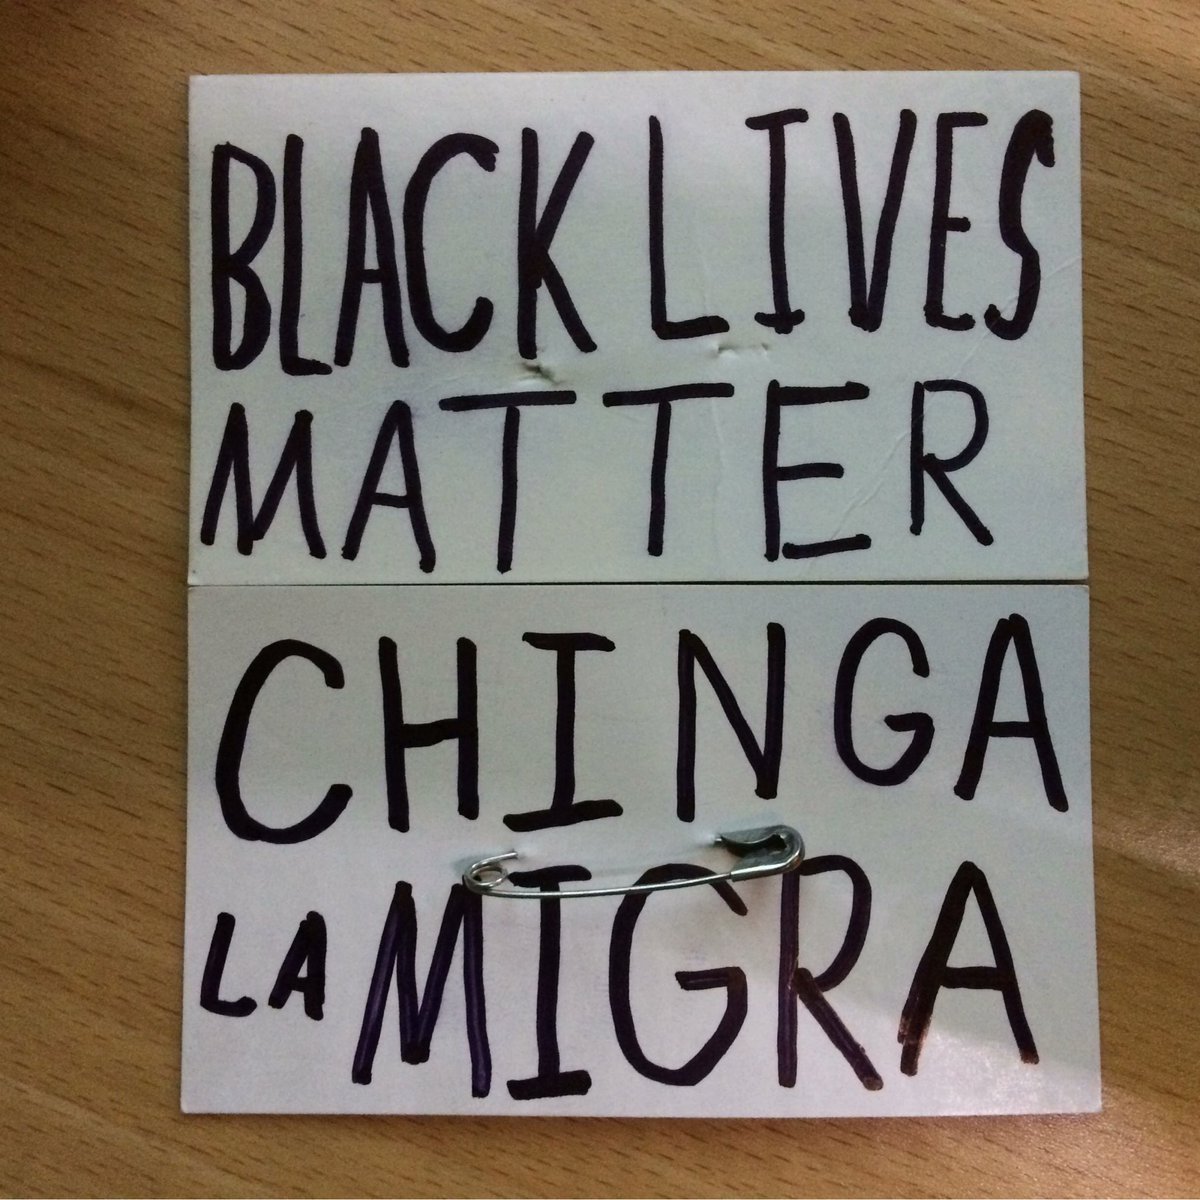 BLACK LIVES
MATTER
CHINGA
LA MIGRA